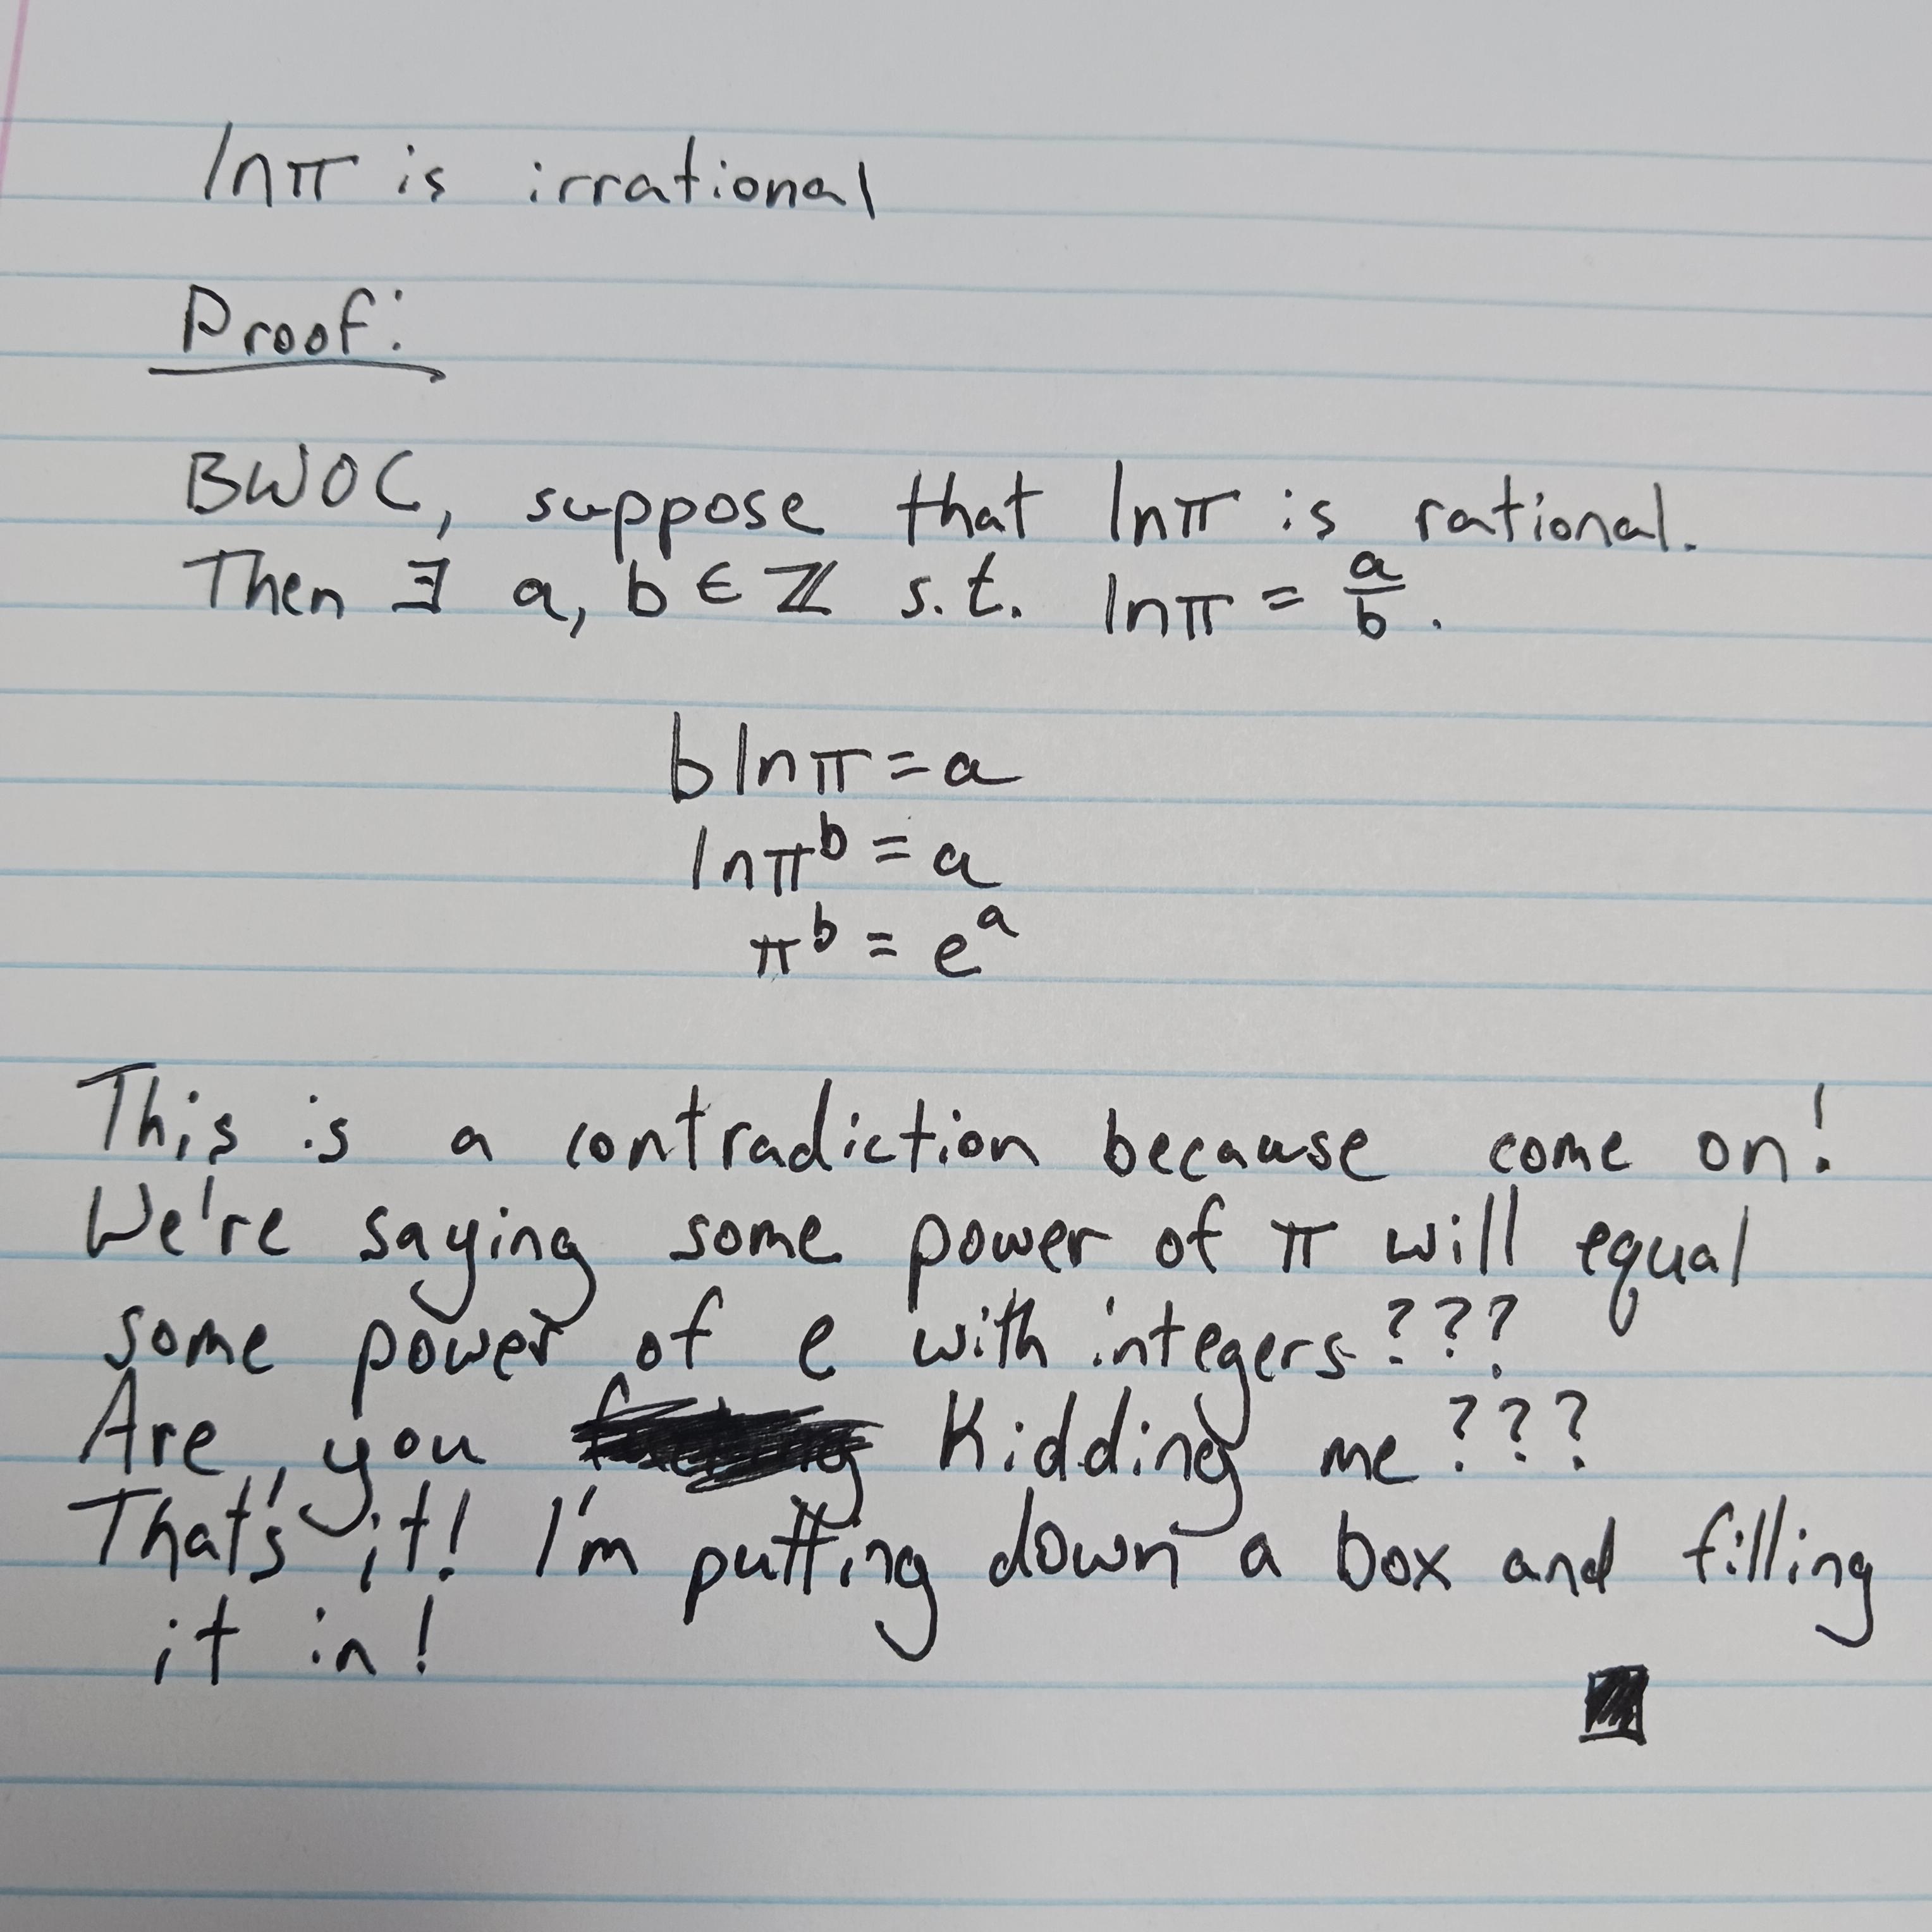 lnπ is irrational
Proof:
BWOC, suppose that lnπ is rational.
Then ∃ a, b ∈ ℤ s.t. lnπ = a/b.
b lnπ = a
lnπ^b = a
π^b = e^a
This is a contradiction because come on!
We're saying some power of π will equal
some power of e with integers???
Are you Kidding me???
That's it! I'm putting down a box and filling
it in!
■